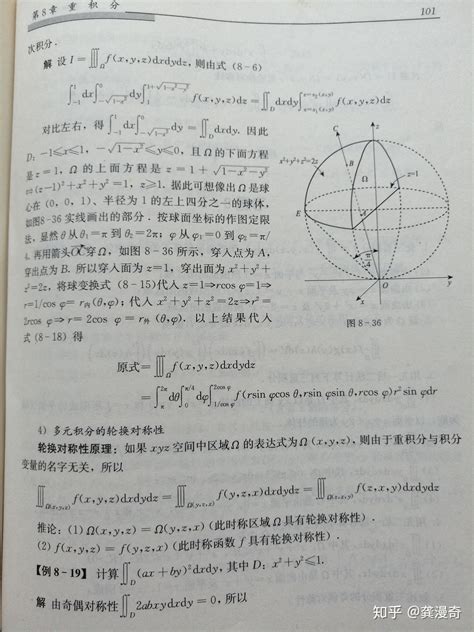 第8章 重 积 分
101
次积分.
解 设 I = ∭_Ω f(x,y,z)dxdydz, 则由式 (8-6)
∫_{-1}^{1}dx∫_{-√(1-x²)}^{0}dy∫_{1}^{1+√(1-x²-y²)} f(x,y,z)dz = ∬_D dxdy∫_{z=z₁(x,y)}^{z=z₂(x,y)} f(x,y,z)dz
对比左右, 得∫_{-1}^{1}dx∫_{-√(1-x²)}^{0}dy = ∬_D dxdy. 因此
D: -1≤x≤1, -√(1-x²)≤y≤0, 且 Ω 的下面方程
是 z=1, Ω 的上面方程是 z=1+√(1-x²-y²)
⇔(z-1)²+x²+y²=1, z≥1. 据此可想象出 Ω 是球
心在 (0, 0, 1)、半径为 1 的左上四分之一的球体,
如图8-36 实线画出的部分. 按球面坐标的作图定限
法, 显然 θ 从 θ₁=π 到 θ₂=2π; φ 从 φ₁=0 到 φ₂=π/
4. 再用箭头OC穿 Ω, 如图 8-36 所示, 穿入点为 A,
穿出点为 B. 所以穿入面为 z=1, 穿出面为 x²+y²+
z²=2z, 将球变换式 (8-15)代入 z=1⇒rcos φ=1⇒
r=1/cos φ=r内(θ,φ); 代入 x²+y²+z²=2z⇒r²=
2rcos φ⇒r=2cos φ=r外(θ,φ). 以上结果代入
式 (8-18) 得
z
C
x²+y²+z²=2z
B
Ω
z=1
E
A
O
y
x
图 8-36
原式=∭_Ω f(x,y,z)dxdydz
=∫_{π}^{2π}dθ∫_{0}^{π/4}dφ∫_{1/cos φ}^{2cos φ} f(rsin φcos θ,rsin φsin θ,rcos φ)r²sin φdr
4) 多元积分的轮换对称性
轮换对称性原理: 如果 xyz 空间中区域 Ω 的表达式为 Ω(x,y,z), 则由于重积分与积分
变量的名字无关, 所以
∭_{Ω(x,y,z)} f(x,y,z)dxdydz = ∭_{Ω(y,z,x)} f(y,z,x)dxdydz = ∭_{Ω(z,x,y)} f(z,x,y)dxdydz
推论: (1) Ω(x,y,z) = Ω(y,z,x) (此时称区域 Ω 具有轮换对称性).
(2) f(x,y,z) = f(y,z,x) (此时称函数 f 具有轮换对称性).
【例8-19】 计算∬_D (ax+by)²dxdy, 其中 D: x²+y²≤1.
解 由奇偶对称性∬_D 2abxydxdy = 0, 所以
知乎 @龚漫奇